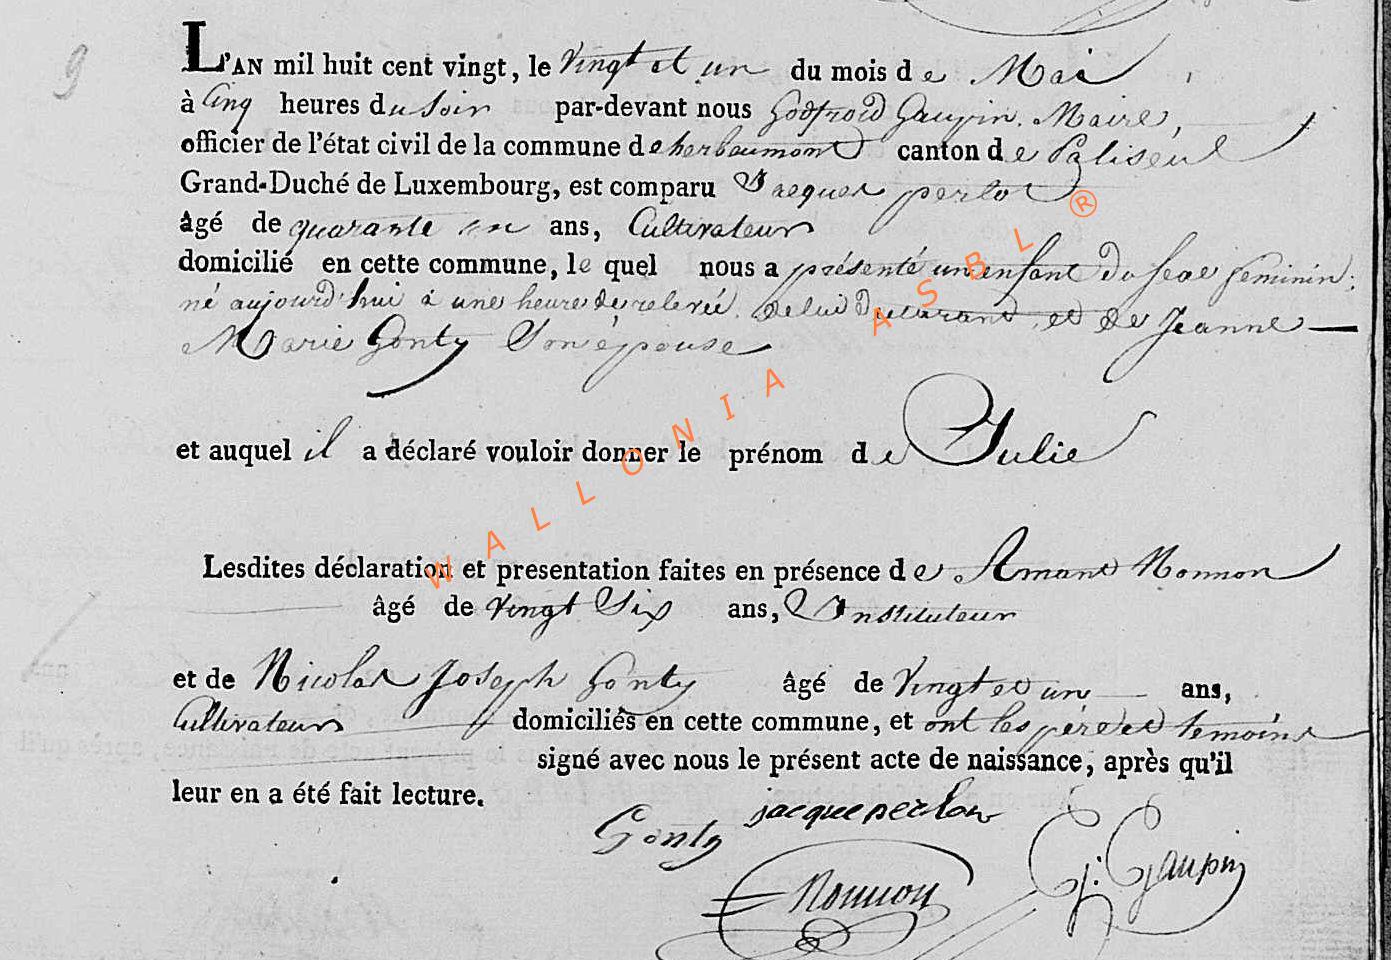 9
L'AN mil huit cent vingt, le vingt et un du mois de Mai
à cinq heures du soir par-devant nous Godfroid Gaupin. Maire,
officier de l'état civil de la commune de herbeumont canton de Paliseul
Grand-Duché de Luxembourg, est comparu Jacques perlot
âgé de quarante un ans, Cultivateur
domicilié en cette commune, le quel nous a présenté un enfant du sexe feminin;
né aujourd'hui à une heure de relevée. de lui Déclarant et de Jeanne
Marie Gonty Son épouse
et auquel il a déclaré vouloir donner le prénom de Julie
Lesdites déclaration et presentation faites en présence de Amand Nonnon
âgé de vingt Six ans, Instituteur
et de Nicolas Joseph Gonty âgé de vingt et un ans,
Cultivateur domiciliés en cette commune, et ont les père et temoins
signé avec nous le présent acte de naissance, après qu'il
leur en a été fait lecture.
Gonty jacque perlow
Nonnon G: Gaupin
WALLONIA ASBL ®